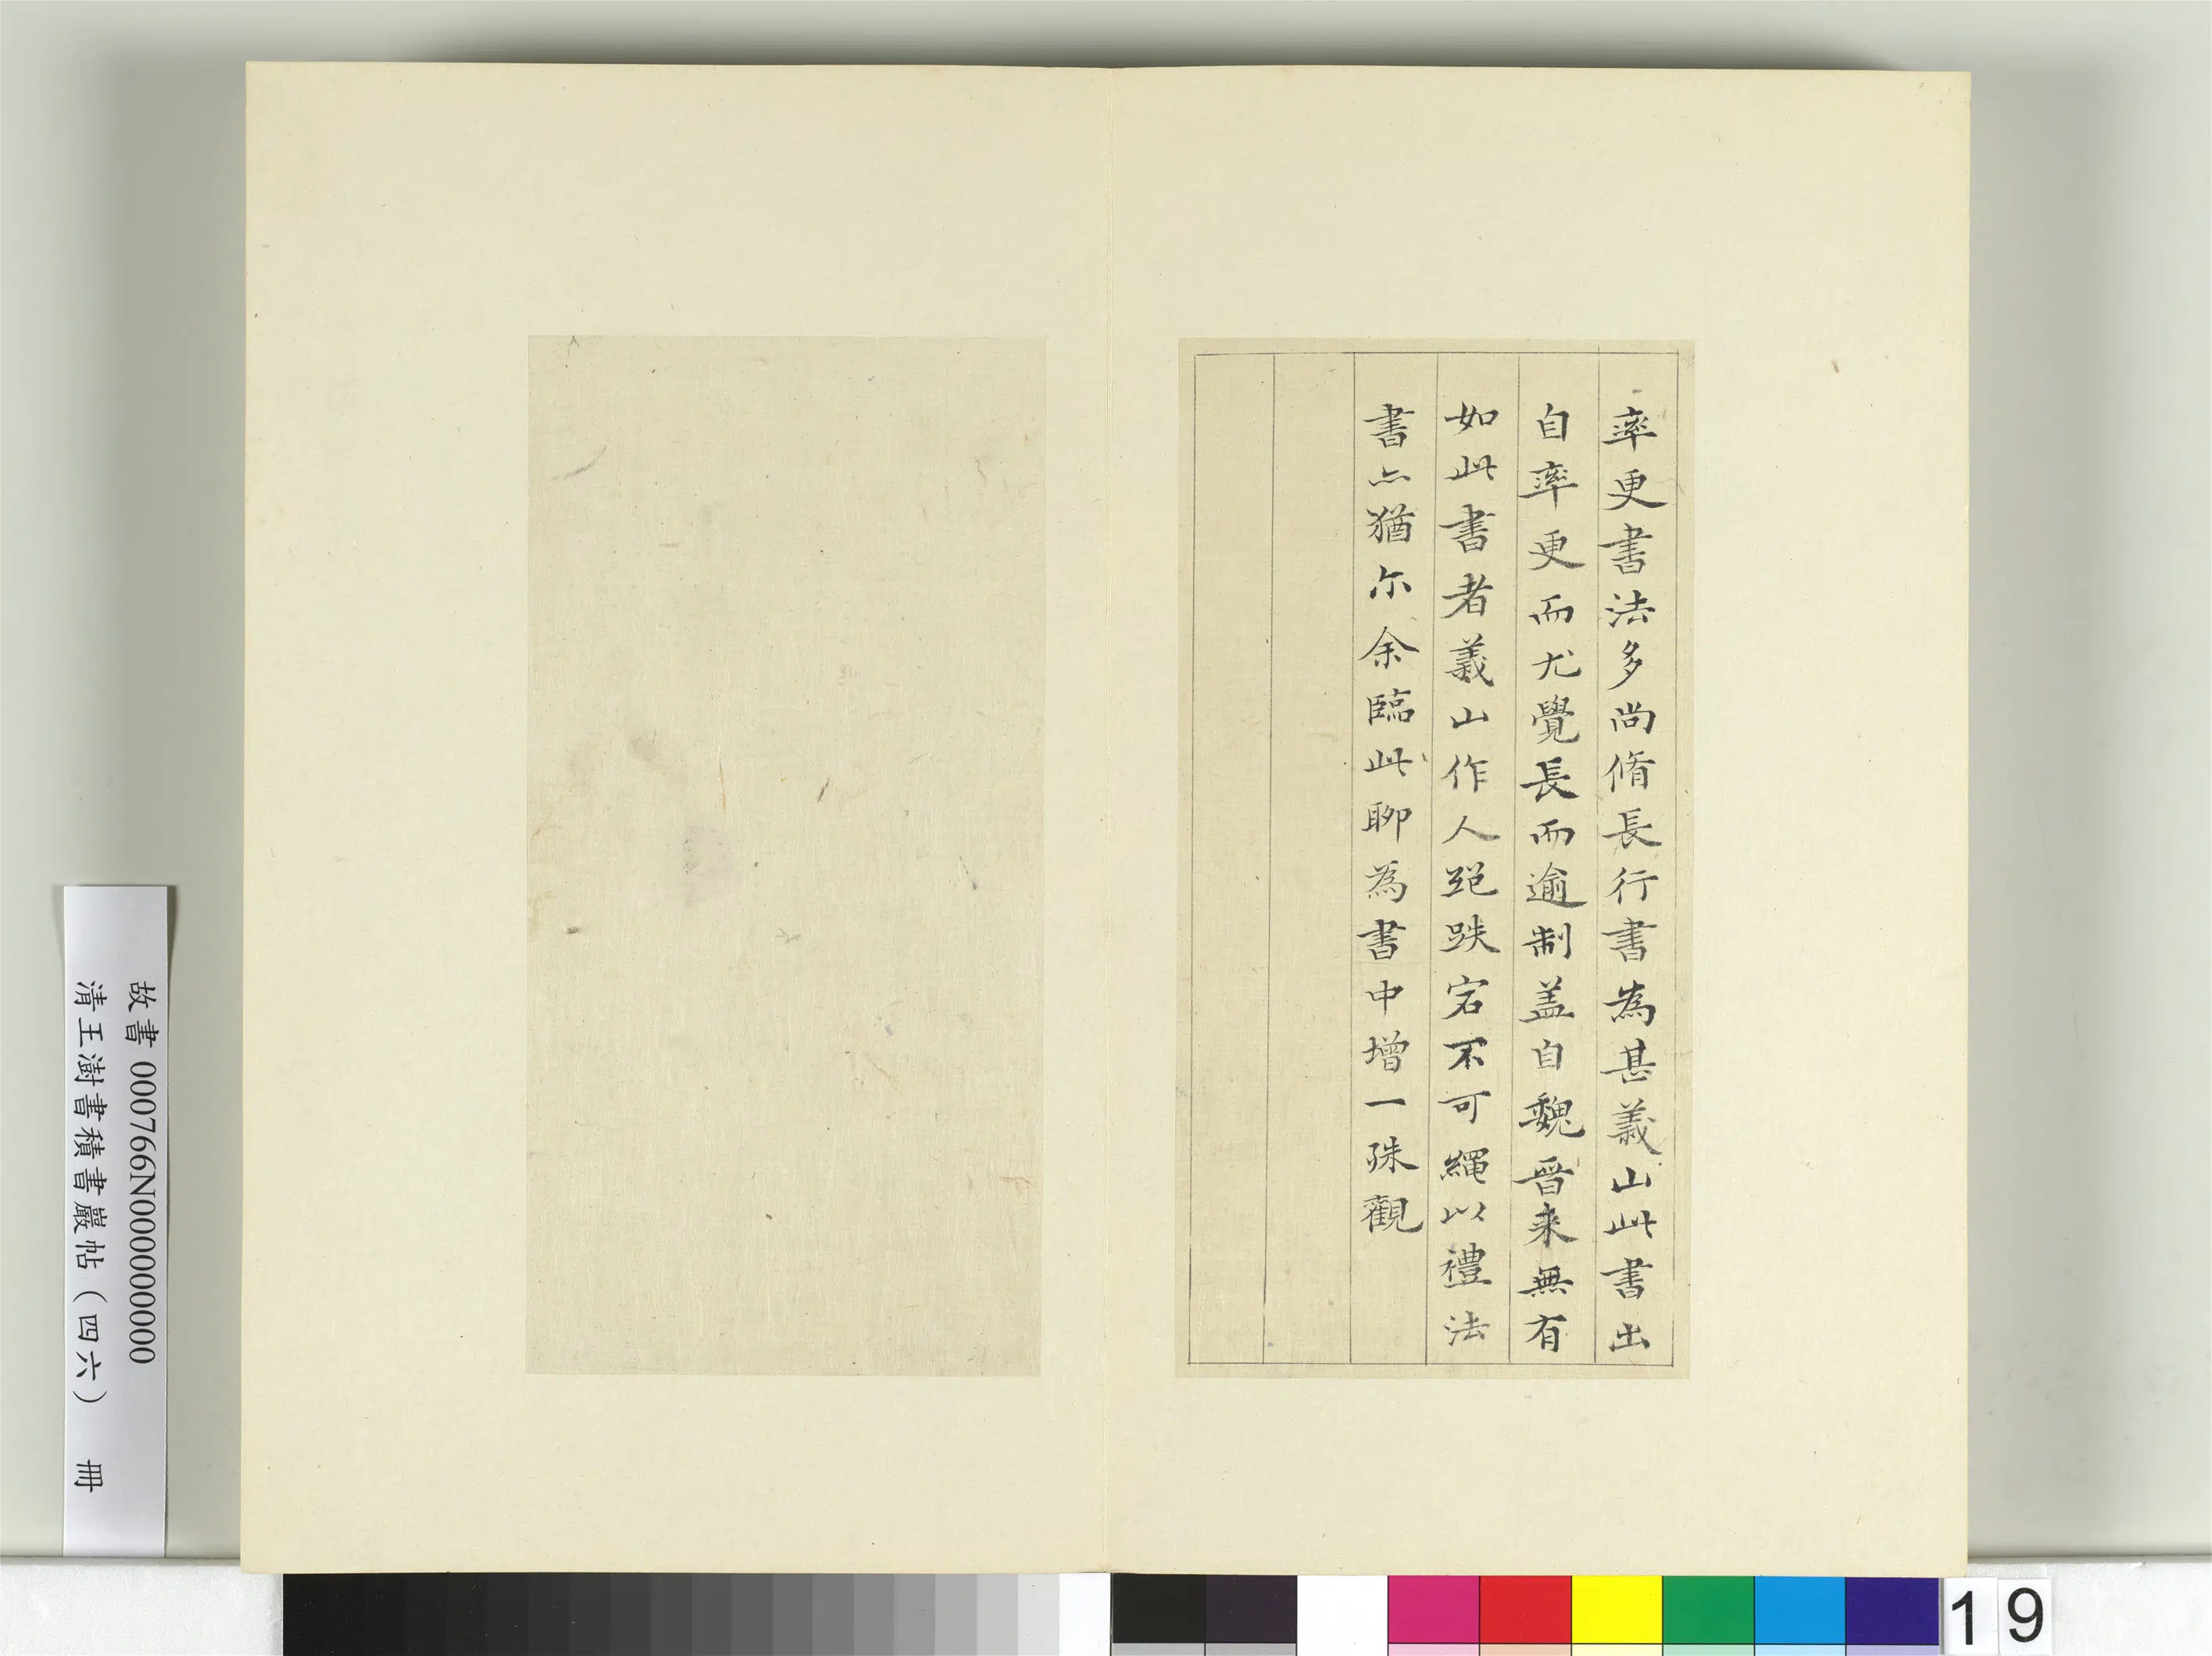 率更書法多尚脩長行書為甚義山此書出
自率更而尤覺長而逾制盖自魏晉来無有
如此書者義山作人跪跌宕不可繩以禮法
書亦猶尔余臨此聊為書中增一殊觀
故書 000766N000000000
清王澍書積書巖帖（四六） 冊
19